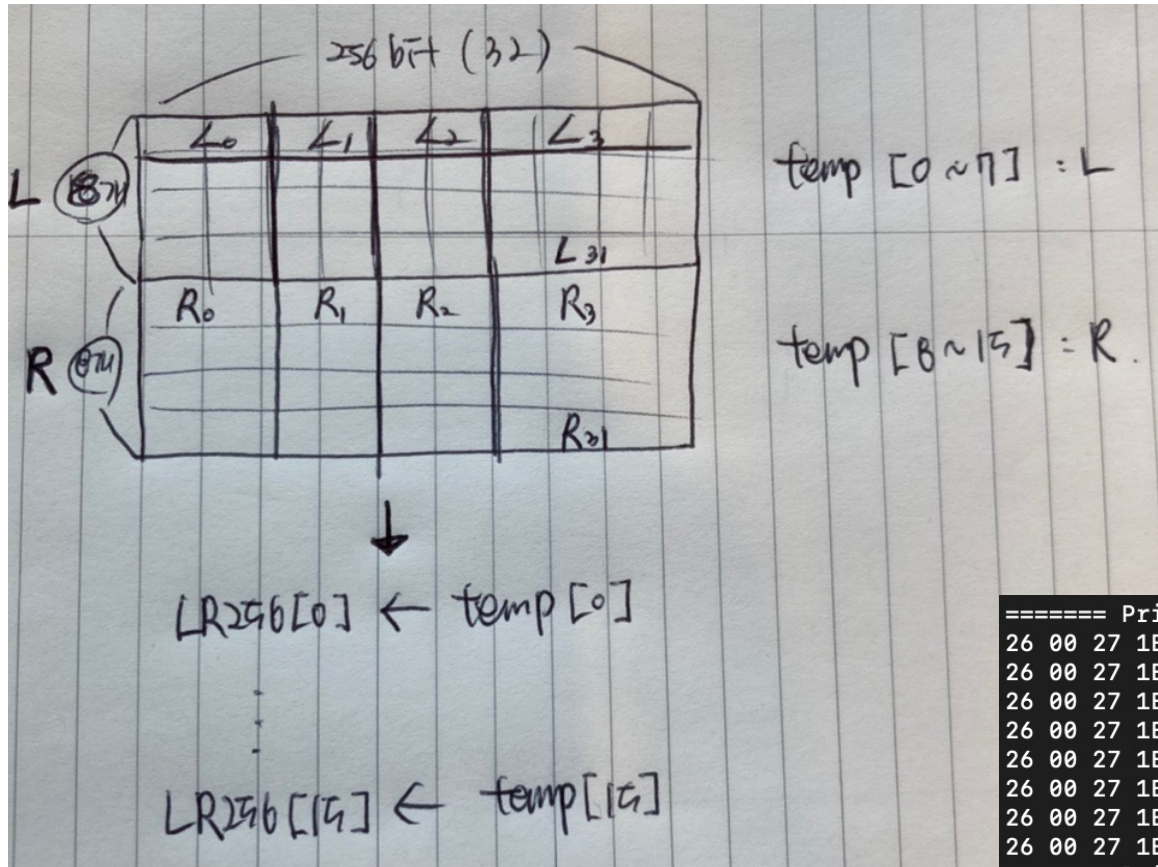 256 bit (32)
L₀ L₁ L₂ L₃
L 8개
L₃₁
temp [0 ~ 7] : L
R₀ R₁ R₂ R₃
R 8개
R₃₁
temp [8 ~ 15] : R.
LR256[0] ← temp [0]
LR256[15] ← temp[15]
======= Pri
26 00 27 1E
26 00 27 1E
26 00 27 1E
26 00 27 1E
26 00 27 1E
26 00 27 1E
26 00 27 1E
26 00 27 1E